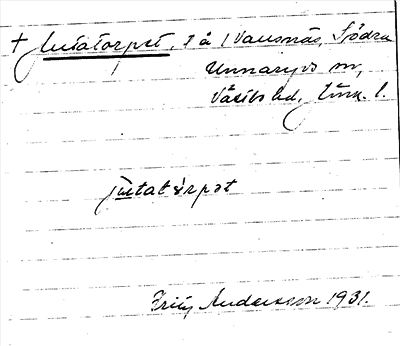 + Jutatorpet, t å Ivausnäs, Södra
Unnaryds sn,
Västbo hd, Jönk. l.
jutatårpat
Fritz Andersson 1931.